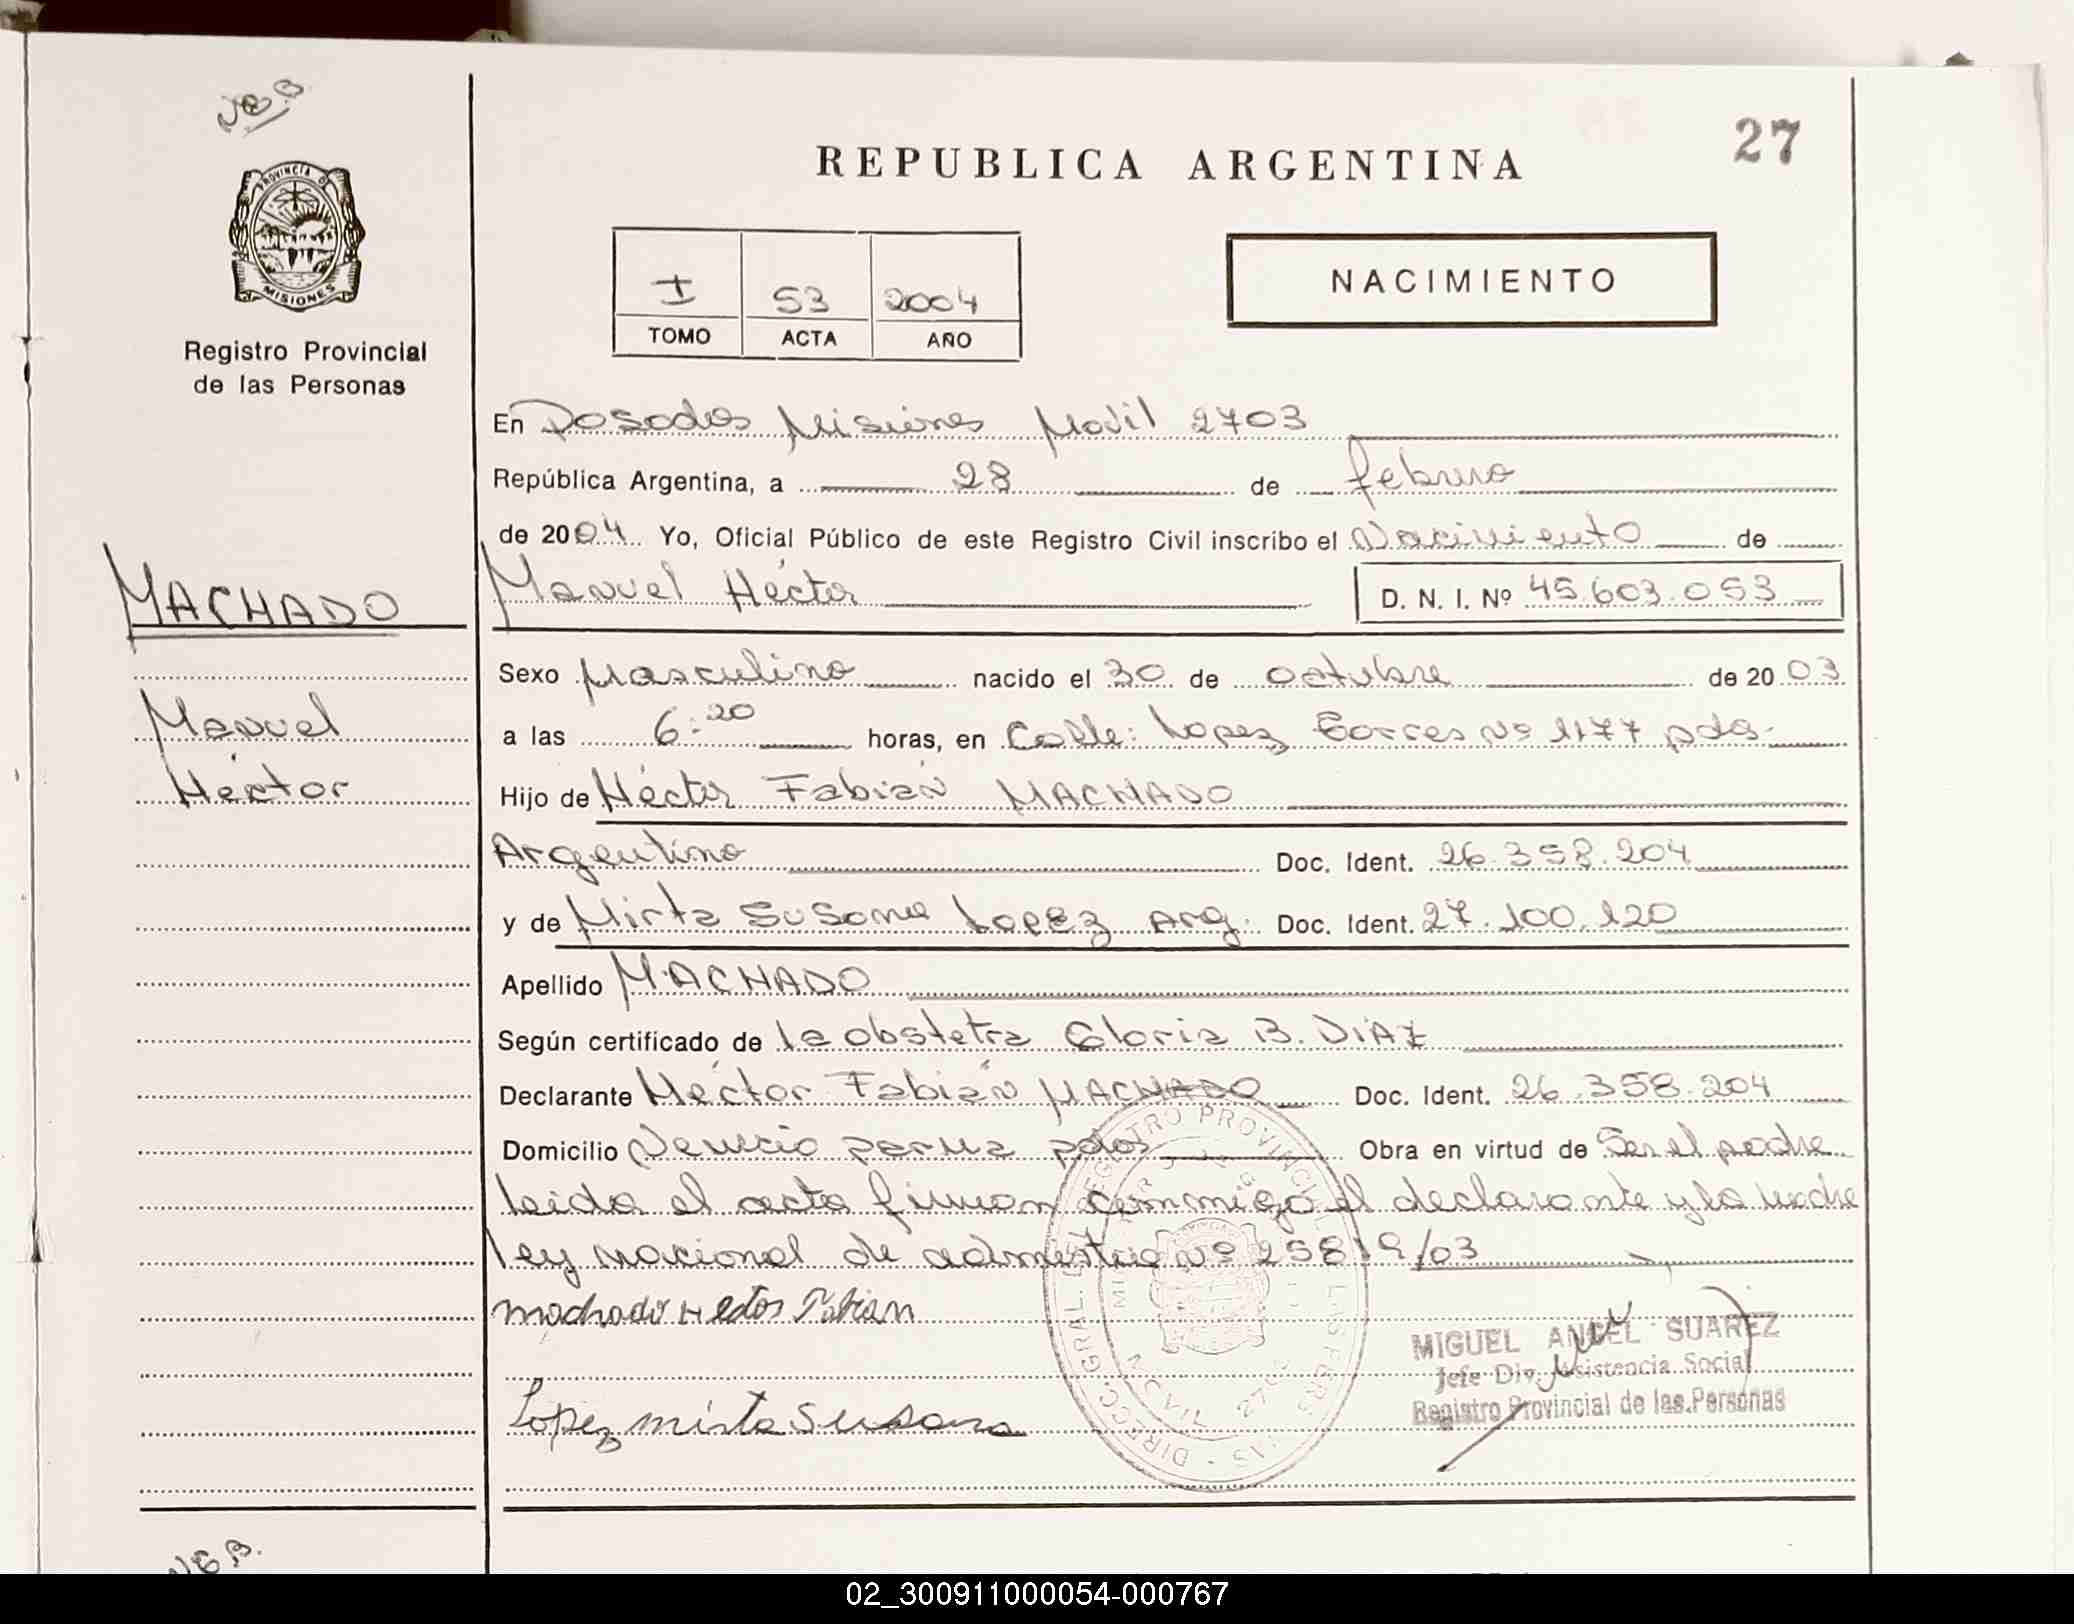 27
REPUBLICA ARGENTINA
PROVINCIA D
MISIONES
Registro Provincial
de las Personas
NACIMIENTO
I 53 2004
TOMO ACTA AÑO
En Posadas Misiones Movil 2703
República Argentina, a 28 de febrero
de 2004 Yo, Oficial Público de este Registro Civil inscribo el Nacimiento de
MACHADO
Manuel Héctor D. N. I. Nº 45.603.053
Sexo Masculino nacido el 30 de octubre de 2003
Manuel
a las 6:20 horas, en Calle: Lopez Torres Nº 1177 pdas.
Héctor
Hijo de Héctor Fabián MACHADO
Argentino Doc. Ident. 26.358.204
y de Mirta Susana Lopez Arg. Doc. Ident. 27.100.120
Apellido MACHADO
Según certificado de la obstetra Gloria B. DIAZ
Declarante Héctor Fabián MACHADO Doc. Ident. 26.358.204
Domicilio pdas Obra en virtud de Ser el padre
leida el acta firman conmigo el declarante y la madre
ley nacional de Nº 25819/03
machado Hector Fabian
MIGUEL ANGEL SUAREZ
Jefe Div. Asistencia Social
Registro Provincial de las Personas
Lopez mirta Susana
02_300911000054-000767